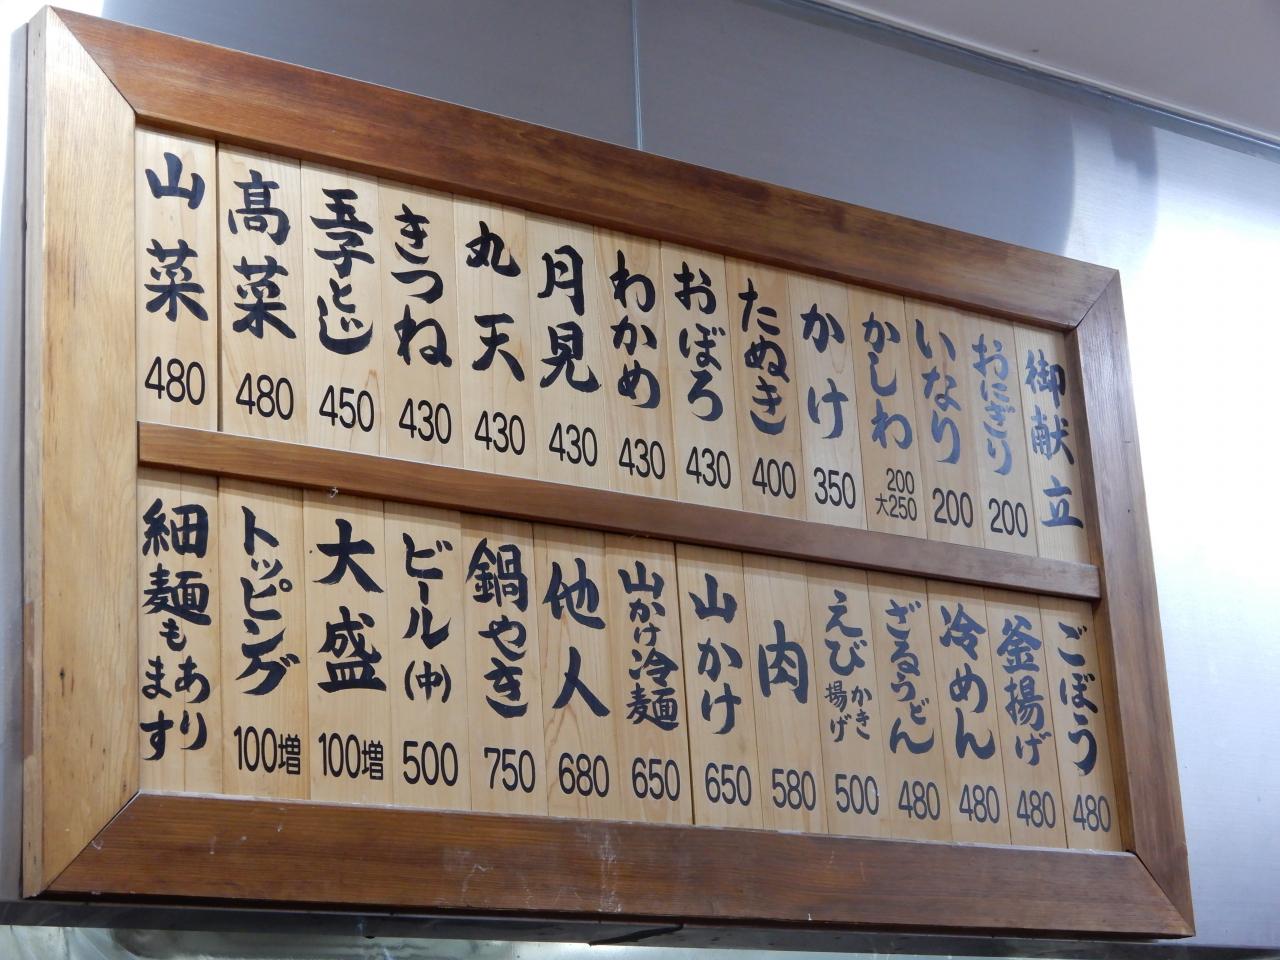 御献立
おにぎり 200
いなり 200
かしわ 200 大250
かけ 350
たぬき 400
おぼろ 430
わかめ 430
月見 430
丸天 430
きつね 430
玉子とじ 450
高菜 480
山菜 480
ごぼう 480
釜揚げ 480
冷めん 480
ざるうどん 480
えびかき揚げ 500
肉 580
山かけ 650
山かけ冷麺 650
他人 680
鍋やき 750
ビール(中) 500
大盛 100増
トッピング 100増
細麺もあります